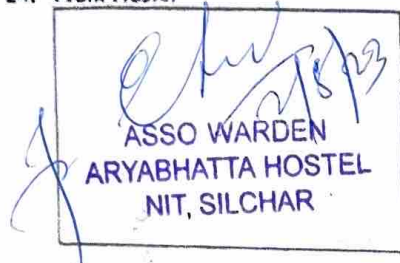 2/8/23
ASSO WARDEN
ARYABHATTA HOSTEL
NIT, SILCHAR